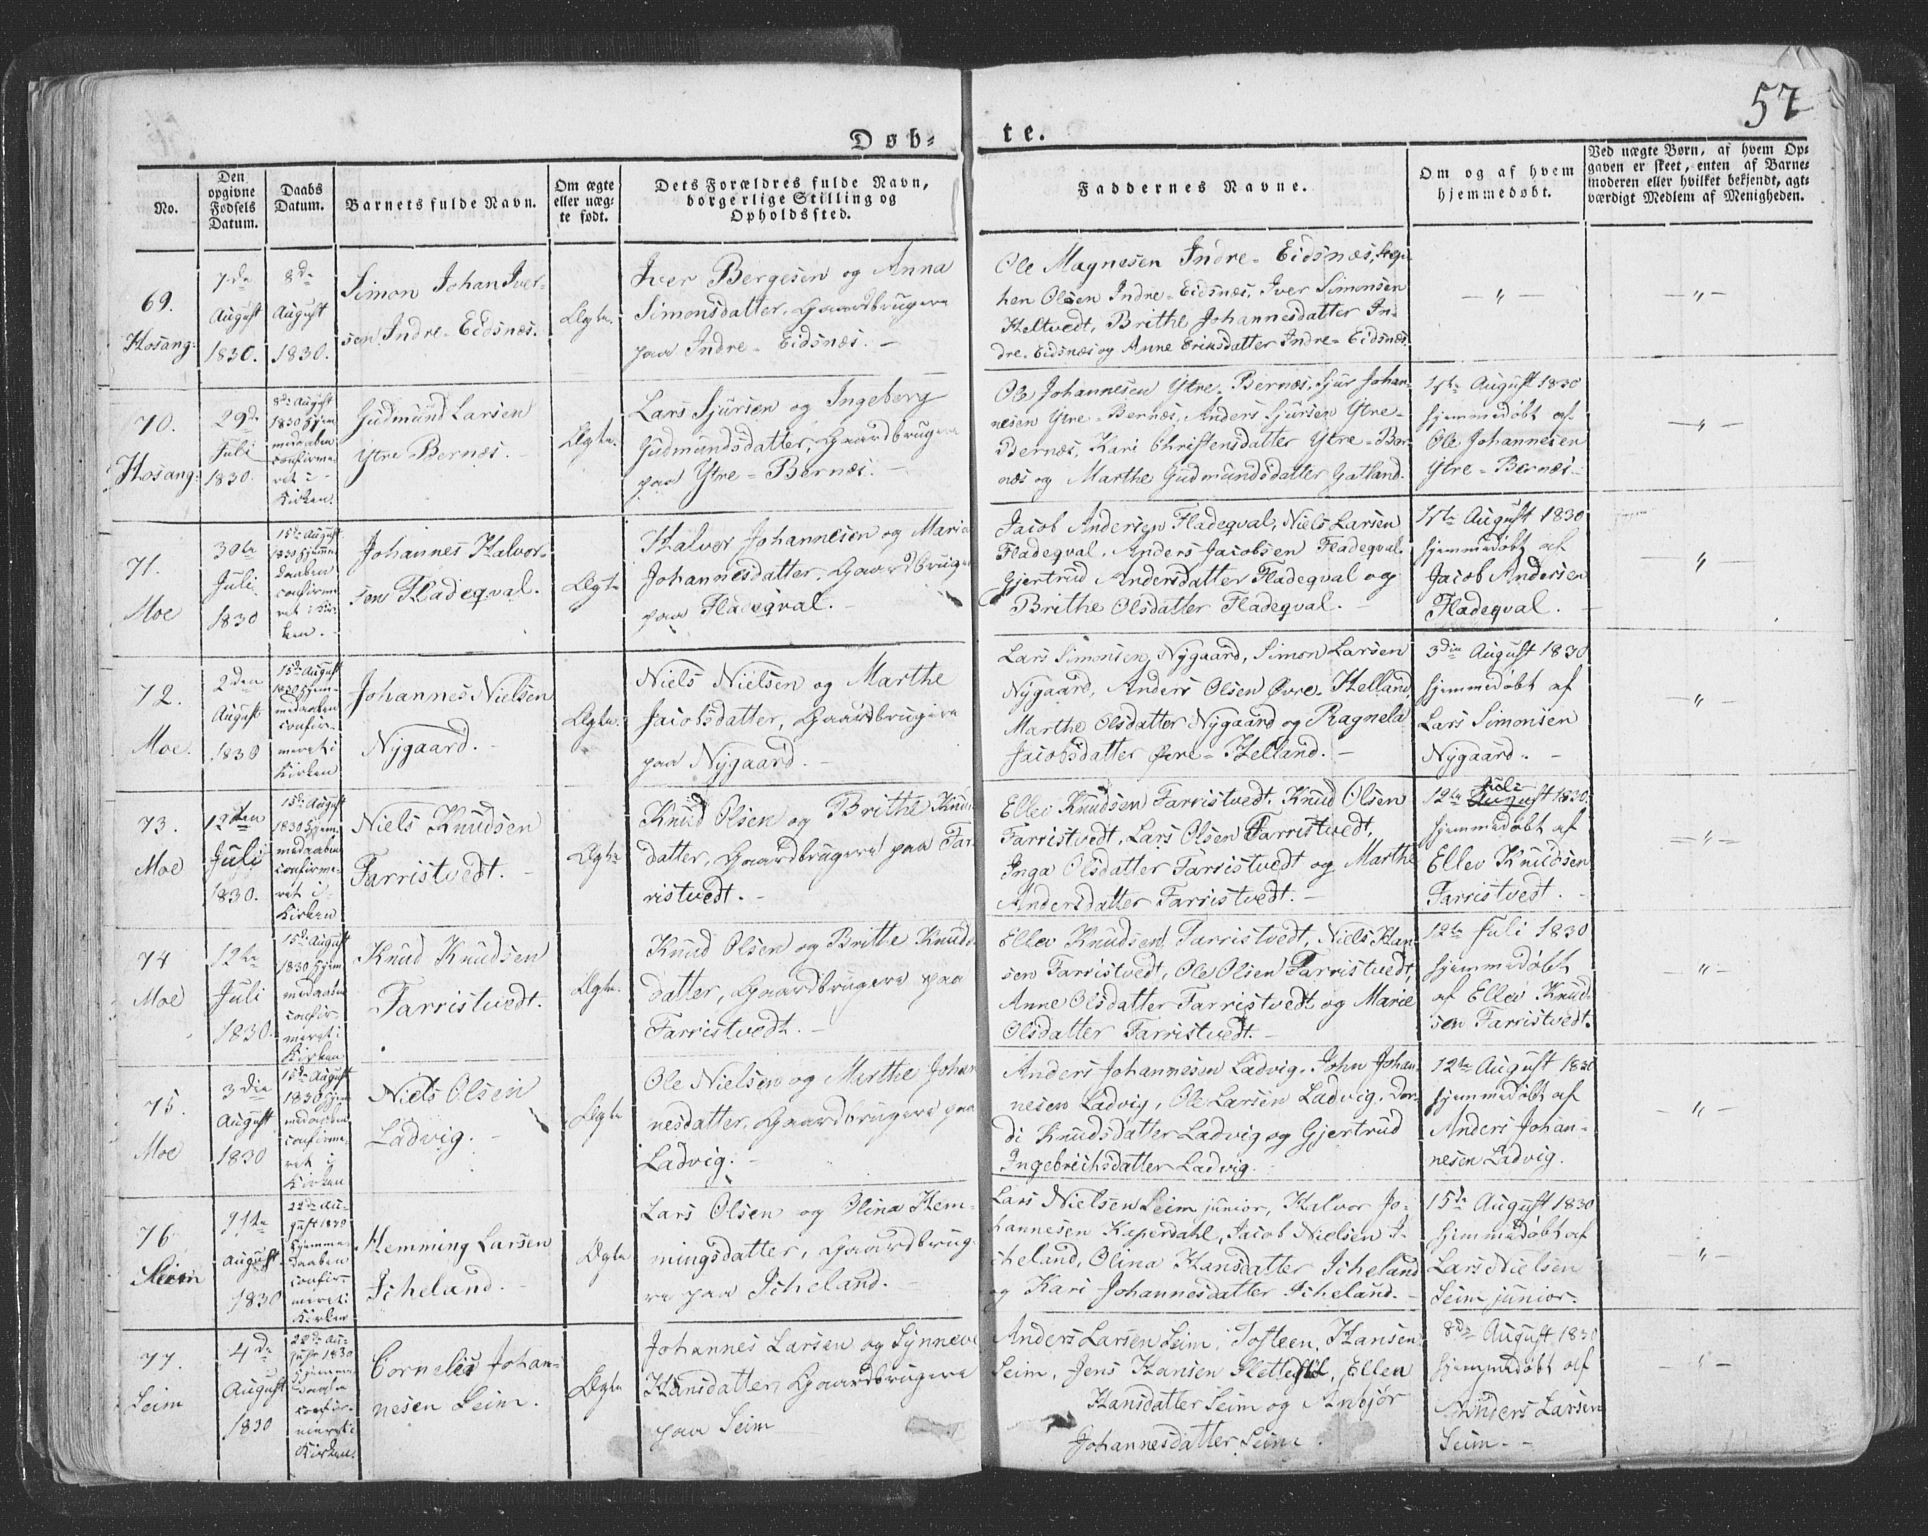 57
Døb-
te.
No.
Den
opgivne
Fødsels
Datum.
Daabs
Datum.
Barnets fulde Navn.
Om ægte
eller uæg-
te født.
Dets Forældres fulde Navn,
borgerlige Stilling og
Opholdssted.
Faddernes Navne.
Om og af hvem
hjemmedøbt.
Ved uægte Børn, af hvem Op-
gaven er skeet, enten af Barne-
moderen eller hvilket bekjendt, agt-
værdigt Medlem af Menigheden.
69.
Hosang:
7de
August
1830.
8de
August
1830.
Simon Johan Iver-
sen Indre-Eidsnæs.
Ægte.
Iver Bergesen og Anna
Simonsdatter, Gaardbrugere
paa Indre-Eidsnæs. -
Ole Magnesen Indre-Eidsnæs,
hen Olsen Indre-Eidsnæs, Iver Simonsen
Heltvedt, Brithe Johannesdatter In-
dre-Eidsnæs og Anne Eriksdatter Indre-Eidsnæs.
- " -
- " -
70.
Hosang:
29de
Juli
1830.
8de August
1830 hjem-
medaaben
confirme-
ret i
Kirken.
Gudmund Larsen
Ytre Bernæs. -
Ægte.
Lars Sjursen og Ingeberg
Gudmundsdatter, Gaardbrugere
paa Ytre-Bernæs. -
Ole Johannesen Ytre-Bernæs, Sjur Johan-
nesen Ytre-Bernæs, Anders Sjursen Ytre-
Bernæs, Kari Christensdatter Ytre-Ber-
næs og Marthe Gudmundsdatter Gatland.
August 1830
hjemmedøbt af
Ole Johannesen
Ytre-Bernæs.
- " -
71.
Moe
30te
Juli
1830
15de August
1830 hjemme-
daaben
confirme-
ret i Kir-
ken.
Johannes Halvor-
sen Fladeqval.
Ægte
Halvor Johannesen og Maria
Johannesdatter, Gaardbrugere
paa Fladeqval. -
Jacob Andersen Fladeqval, Niels Larsen
Fladeqval, Anders Jacobsen Fladeqval,
Gjertrud Andersdatter Fladeqval og
Brithe Olsdatter Fladeqval. -
August 1830
hjemmedøbt af
Jacob Andersen
Fladeqval. -
" -
72.
Moe.
2den
August
1830
15de August
1830 hjem-
medaaben
confir-
meret i
Kirken
Johannes Nielsen
Nygaard. -
Ægte.
Niels Nielsen og Marthe
Jacobsdatter, Gaardbrugere
paa Nygaard. -
Lars Simonsen Nygaard, Simon Larsen
Nygaard, Anders Olsen Øvre-Helland,
Marthe Olsdatter Nygaard og Ragnela
Jacobsdatter Øvre-Helland. -
3die August 1830
hjemmedøbt af
Lars Simonsen
Nygaard. -
" -
73.
Moe
12ten
Juli
1830.
15de August
1830 hjem-
medaaben
confirme-
ret i
Kirken
Niels Knudsen
Farristvedt. -
Ægte
Knud Olsen og Brithe Knuds-
datter, Gaardbrugere paa Far-
ristvedt. -
Ellev Knudsen Farristvedt, Knud Olsen
Farristvedt, Lars Olsen Farristvedt,
Inga Olsdatter Farristvedt og Marthe
Andersdatter Farristvedt. -
Juli
12te August 1830.
hjemmedøbt af
Ellev Knudsen
Farristvedt. -
- " -
74
Moe
12te
Juli
1830.
15de August
1830 hjem-
medaaben
confir-
meret i
Kirken
Knud Knudsen
Farristvedt.
Ægte.
Knud Olsen og Brithe Knuds-
datter, Gaardbrugere paa
Farristvedt. -
Ellev Knudsen Farristvedt, Niels Han-
sen Farristvedt, Ole Olsen Farristvedt,
Anne Olsdatter Farristvedt og Marie
Olsdatter Farristvedt. -
12te Juli 1830
hjemmedøbt
af Ellev Knud-
sen Farristvedt.
" -
75.
Moe
3die
August
1830
15de August
1830 hjem-
medaaben
confirme-
ret i
Kirken
Niels Olsen
Ladvig. -
Ægte
Ole Nielsen og Marthe Johan-
nesdatter, Gaardbrugere paa
Ladvig. -
Anders Johannesen Ladvig, John Johan-
nesen Ladvig, Ole Larsen Ladvig, Dor-
di Knudsdatter Ladvig og Gjertrud
Ingebrichsdatter Ladvig.
12te August 1830
hjemmedøbt af
Anders Johan-
nesen Ladvig.
- " -
76.
Seim
August
1830
22de Au-
gust 1830
hjemme-
daaben
confir-
meret i
Kirken
Hemming Larsen
Icheland.
Ægte
Lars Olsen og Olina Hem-
mingsdatter, Gaardbrug-
re paa Icheland. -
Lars Nielsen Seim junior, Halvor Jo-
hannesen Kaperdahl, Jacob Nielsen I-
cheland, Olina Hansdatter Icheland
og Kari Johannesdatter Icheland. -
15de August 1830
hjemmedøbt af
Lars Nielsen
Seim junior.
- " -
77.
Seim
4de
August
1830
22de Au-
gust 1830
hjemme-
daaben
confir-
meret i
Kirken.
Cornelis Johan-
nesen Seim.
Ægte
Johannes Larsen og Synneve
Hansdatter, Gaardbrugere
paa Seim
Anders Larsen Seim, Tosteen Hansen
Seim, Jens Hansen, Ellen
Hansdatter Seim og Anbjør
Johannesdatter Seim.
8de August 1830
hjemmedøbt af
Anders Larsen
Seim. -
- " -